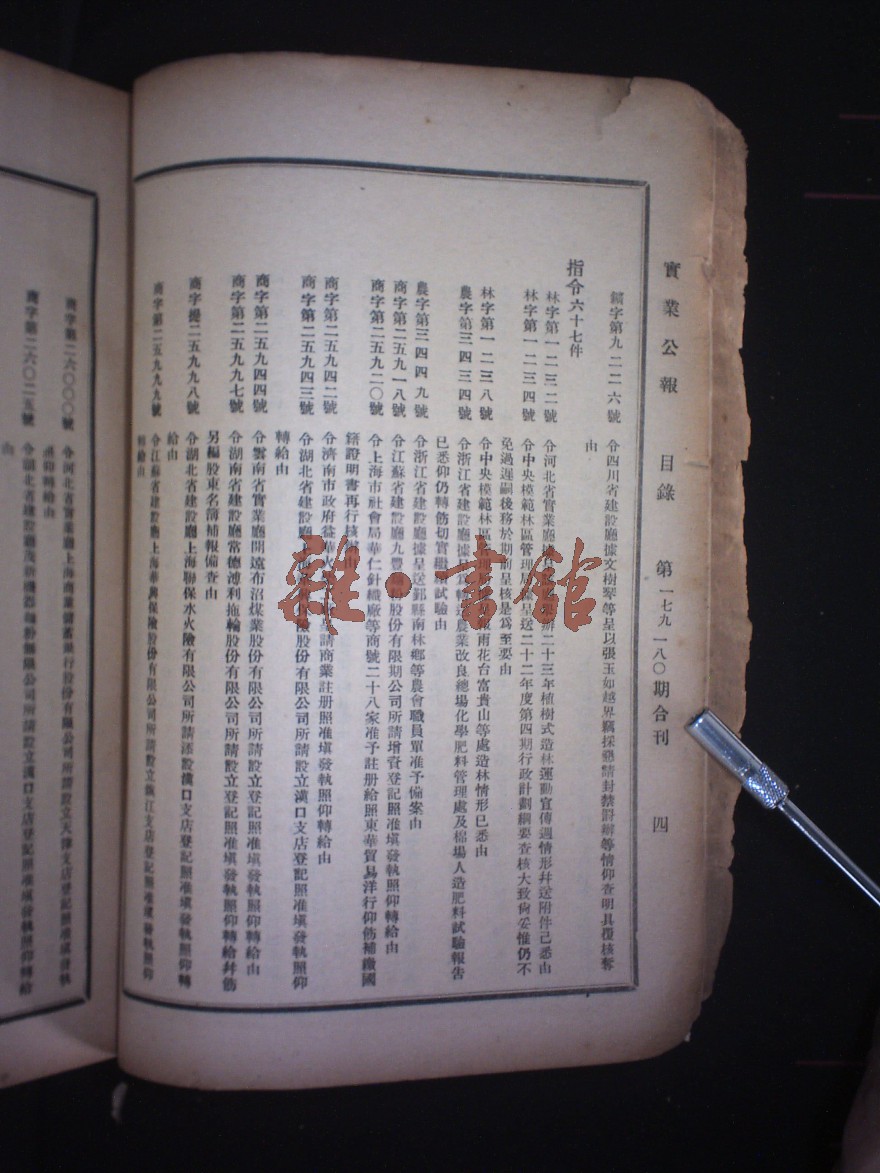 實業公報 目錄 第一七九一八〇期合刊 四
鑛字第九二二六號 令四川省建設廳據文樹翠等呈以張玉如越界竊採懇請封禁罰辦等情仰查明具覆核奪
由
指令六十七件
林字第一二三二號 令河北省實業廳 辦二十三年植樹式造林運動宣傳週情形幷送附件已悉由
林字第一二三四號 令中央模範林區管理 呈送二十二年度第四期行政計劃綱要查核大致尙妥惟仍不
免過遲嗣後務於期前呈核是爲至要由
林字第一二三八號 令中央模範林區管理 報雨花台富貴山等處造林情形已悉由
農字第三四三四號 令浙江省建設廳據 農業改良總場化學肥料管理處及棉場人造肥料試驗報告
已悉仰仍轉飭切實繼續試驗由
農字第三四四九號 令浙江省建設廳據呈送鄞縣南林鄉等農會職員單准予備案由
商字第二五九一八號 令江蘇省建設廳九豐 股份有限期公司所請增資登記照准塡發執照仰轉給由
商字第二五九二〇號 令上海市社會局華仁針織廠等商號二十八家准予註册給照東華貿易洋行仰飭補繳國
籍證明書再行核 由
商字第二五九四二號 令濟南市政府益華火 請商業註册照准塡發執照仰轉給由
商字第二五九四三號 令湖北省建設廳上海 股份有限公司所請設立漢口支店登記照准塡發執照仰
轉給由
商字第二五九四四號 令雲南省實業廳開遠布沼煤業股份有限公司所請設立登記照准塡發執照仰轉給由
商字第二五九九七號 令湖南省建設廳常德溥利拖輪股份有限公司所請設立登記照准塡發執照仰轉給幷飭
另編股東名簿補報備查由
商字第二五九九八號 令湖北省建設廳上海聯保水火險有限公司所請添設漢口支店登記照准塡發執照仰轉
給由
商字第二五九九九號 令江蘇省建設廳上海華興保險股份有限公司所請設立鎭江支店登記照准塡發執照仰
轉給由
商字第二六〇〇〇號 令河北省實業廳上海商業儲蓄銀行股份有限公司所請設立天津支店登記照准塡發執
照仰轉給由
商字第二六〇二五號 令湖北省建設廳 機器麵粉無限公司所請設立漢口支店登記照准塡發執照仰轉給
由
雜·書館